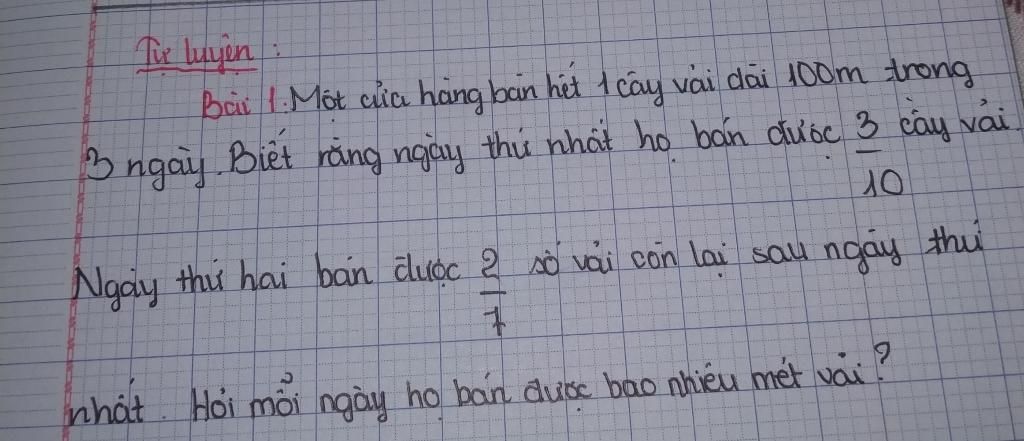 Tự luyện :
Bài 1. Một cửa hàng bán hết 1 cây vải dài 100m trong
3 ngày. Biết rằng ngày thứ nhất họ bán được 3/10 cây vải.
Ngày thứ hai bán được 2/7 số vải còn lại sau ngày thứ
nhất. Hỏi mỗi ngày họ bán được bao nhiêu mét vải?